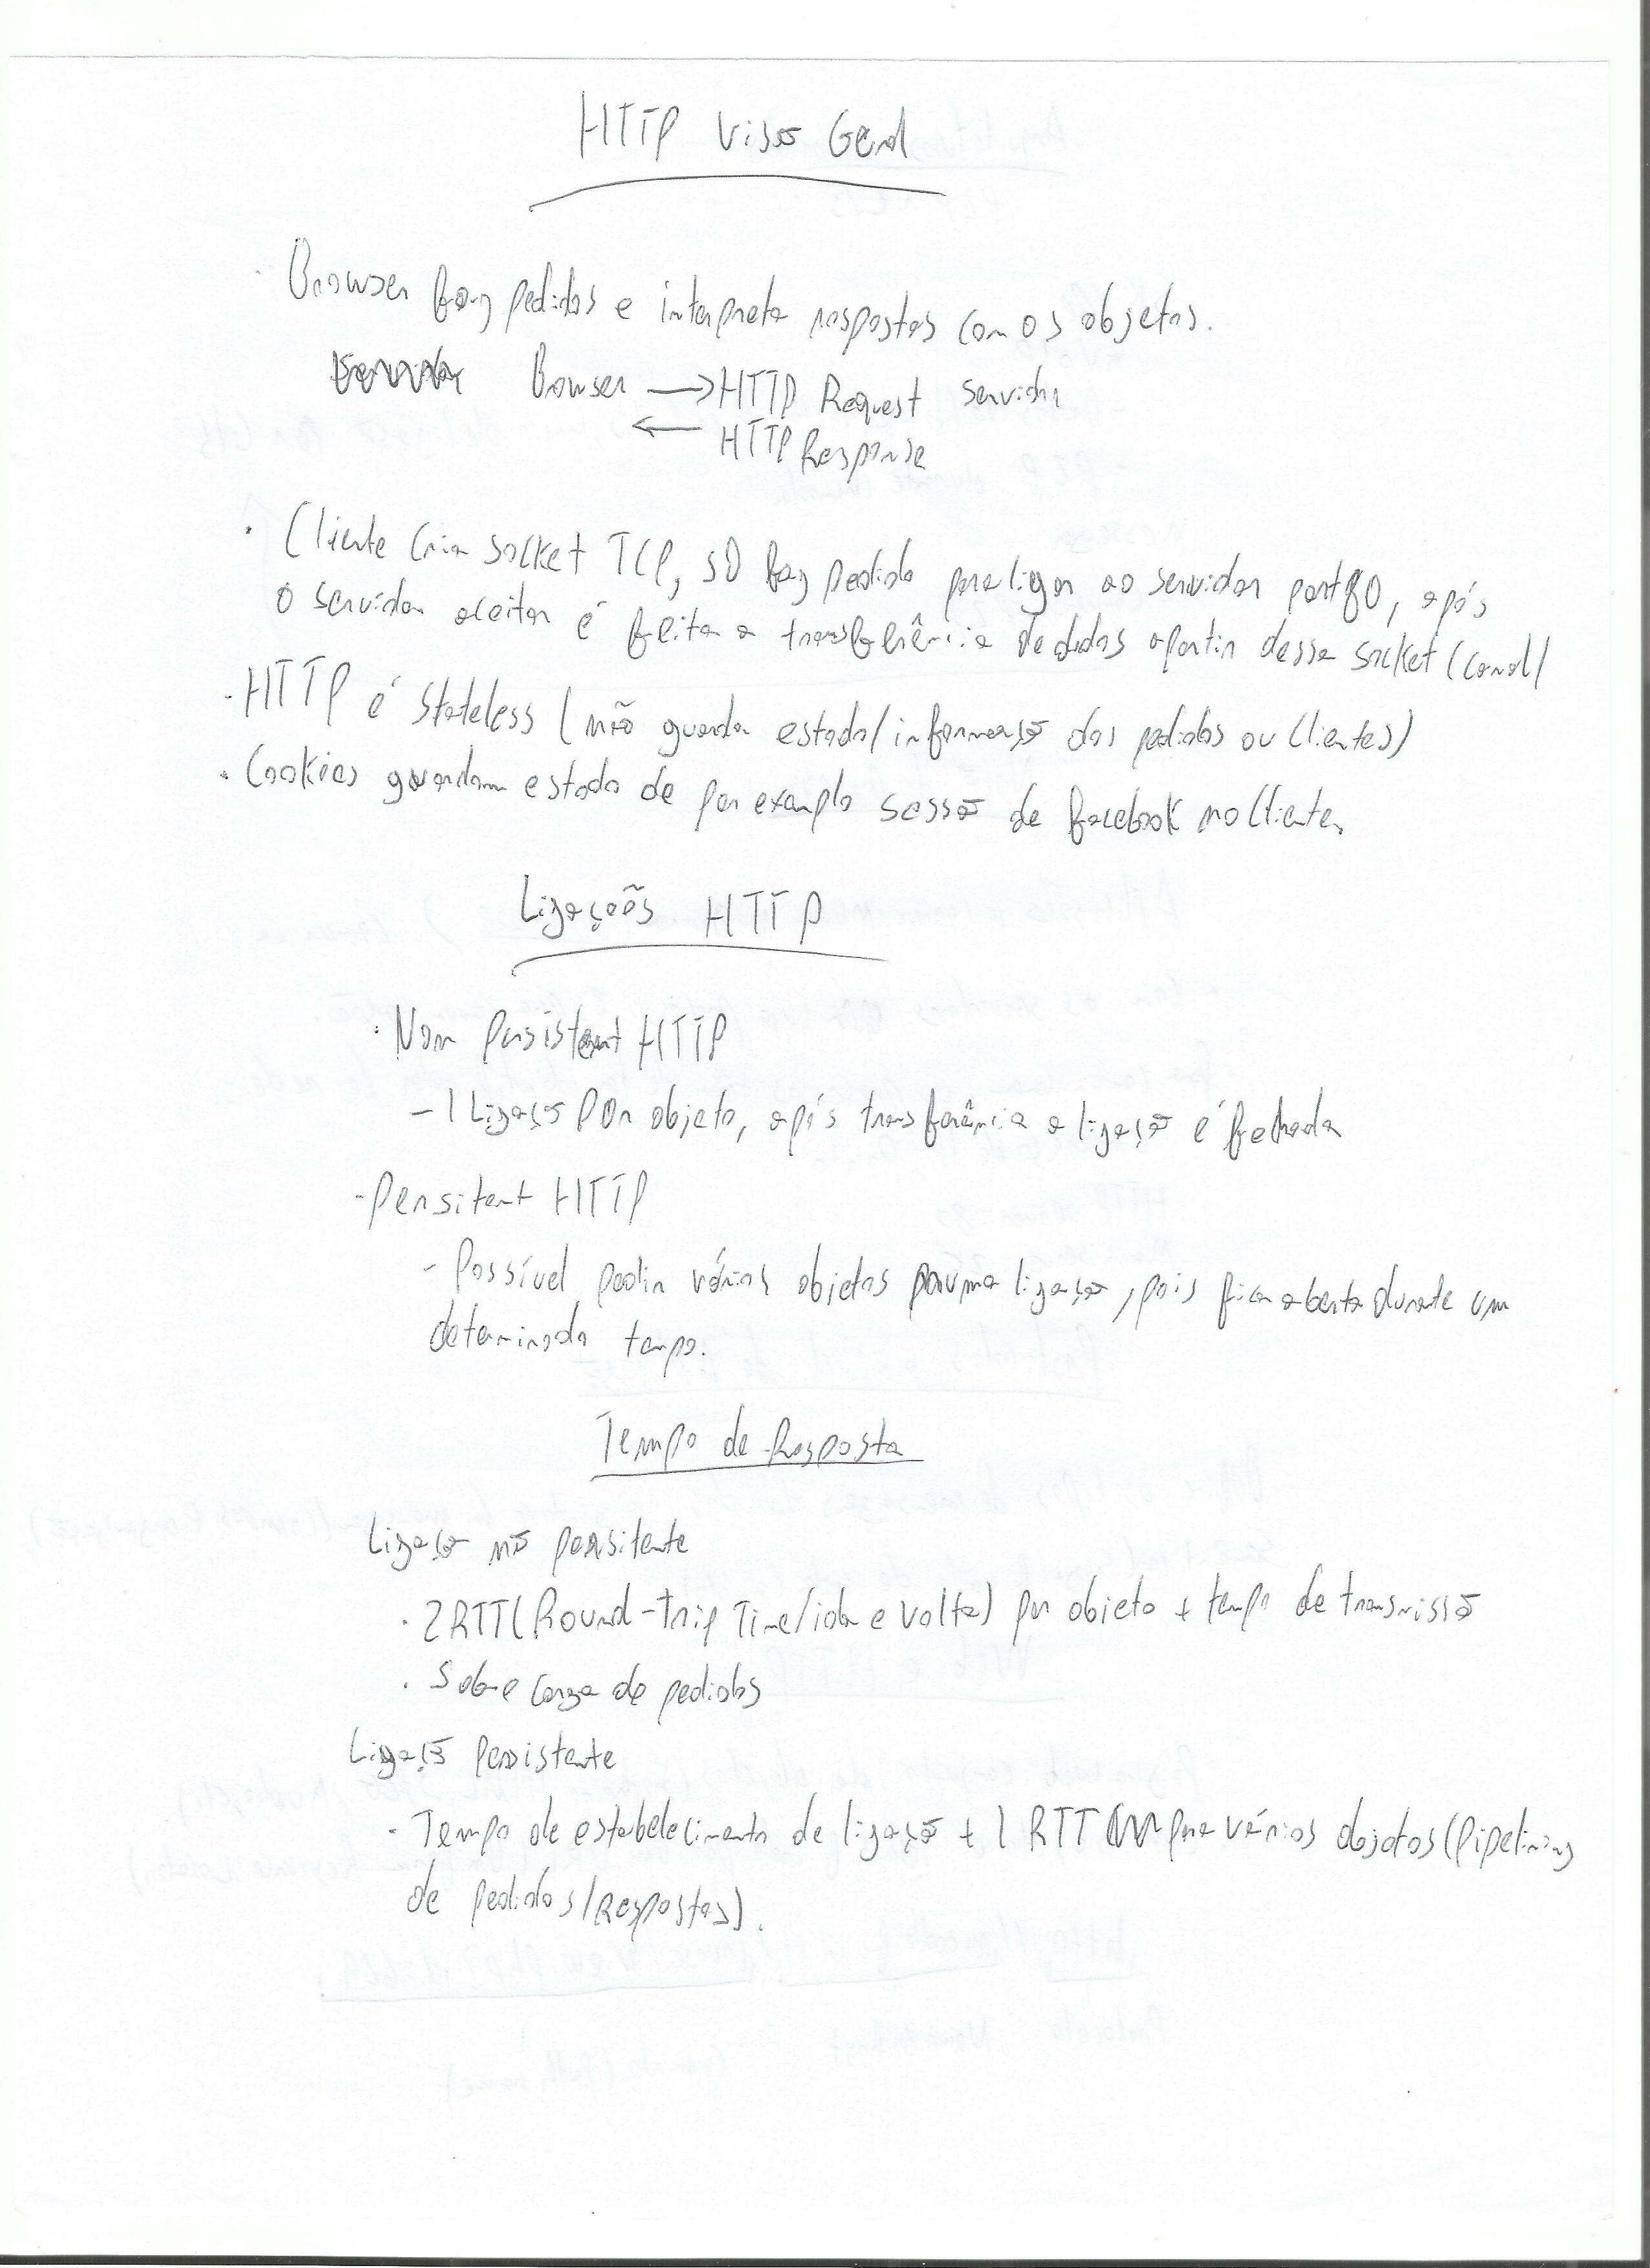 HTTP Visão Geral
· Browser faz pedidos e interpreta respostas com os objetos.
Browser → HTTP Request Servidor
← HTTP Response
· Cliente cria socket TCP, só faz pedido para ligar ao servidor port 80, após
o servidor aceitar é feita a transferência de dados a partir desse socket (canal)
· HTTP é stateless (não guarda estado/informação dos pedidos ou clientes)
· Cookies guardam estado de por exemplo sessão de facebook no cliente.
Ligações HTTP
· Non Persistent HTTP
- 1 Ligação por objeto, após transferência a ligação é fechada
- Persitent HTTP
- Possível pedir vários objetos por uma ligação, pois fica aberta durante um
determinado tempo.
Tempo de Resposta
Ligação não persitente
· 2RTT (Round-Trip Time/ida e volta) por objeto + tempo de transmissão
· Sobre carga de pedidos
Ligação persistente
· Tempo de estabelecimento de ligação + 1 RTT para vários objetos (Pipelining
de pedidos/Respostas).